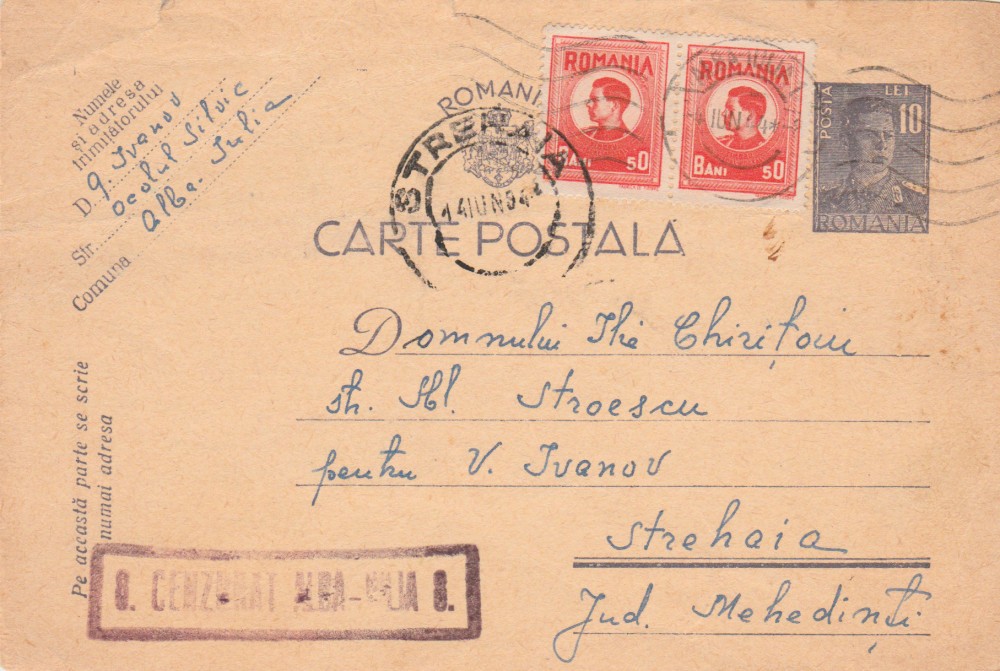 Numele
și adresa
trimițătorului
D. g Ivanov
ocolul Silvic
Alba-Iulia
Str.
Comuna
ROMANIA
BANI 50
ROMANIA
BANI 50
POSTA LEI
10
ROMANIA
ROMANIA
STREHAIA
14 IUN 944
IUN 944
CARTE POSTALA
Domnului Ilie Chirițoiu
str. Sbl. Stroescu
pentru V. Ivanov
Strehaia
Jud. Mehedinți
Pe această parte se scrie
numai adresa
8. CENZURAT ALBA-IULIA 8.